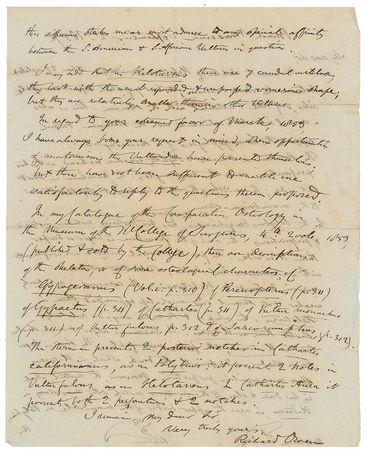 this difference states near most adverse to any special affinity
between the S. American & S. African Vultures in question.
I may add that in Helotarsus there are 7 caudal vertebrae,
the last with the usual expanded & compressed vomerine shape,
but they are relatively smaller than in other Vultures.
In regard to your esteemed favor of March 1855
I have always some your request in mind, when opportunities
of anatomizing the Vulturidae have presented themselves,
but these have not been sufficient to enable me
satisfactorily to reply to the questions therein proposed.
In my Catalogue of the Comparative Osteology in
the Museum of the Rl College of Surgeons, 4to 2 vols, 1853
(published & sold by the College), there are descriptions
of the skeleton, or of some osteological characters, of
Gypogeranus (Vol. i. p. 310) of Percnopterus (p. 311)
of Gypaetus (p. 311) of Cathartes (p. 311) of Vultur monachus
(p. 311) of Vultur fulvous, p. 312 & of Sarcoramphus, (p. 312).
The sternum presents 2 posterior notches in Cathartes
californianus, as in Polybus: it presents 2 notches in
Vultur fulvous, as in Helotarsus. In Cathartes Aura it
presents both 2 perforations & 2 notches.
I remain, My dear Sir
Very truly yours,
Richard Owen